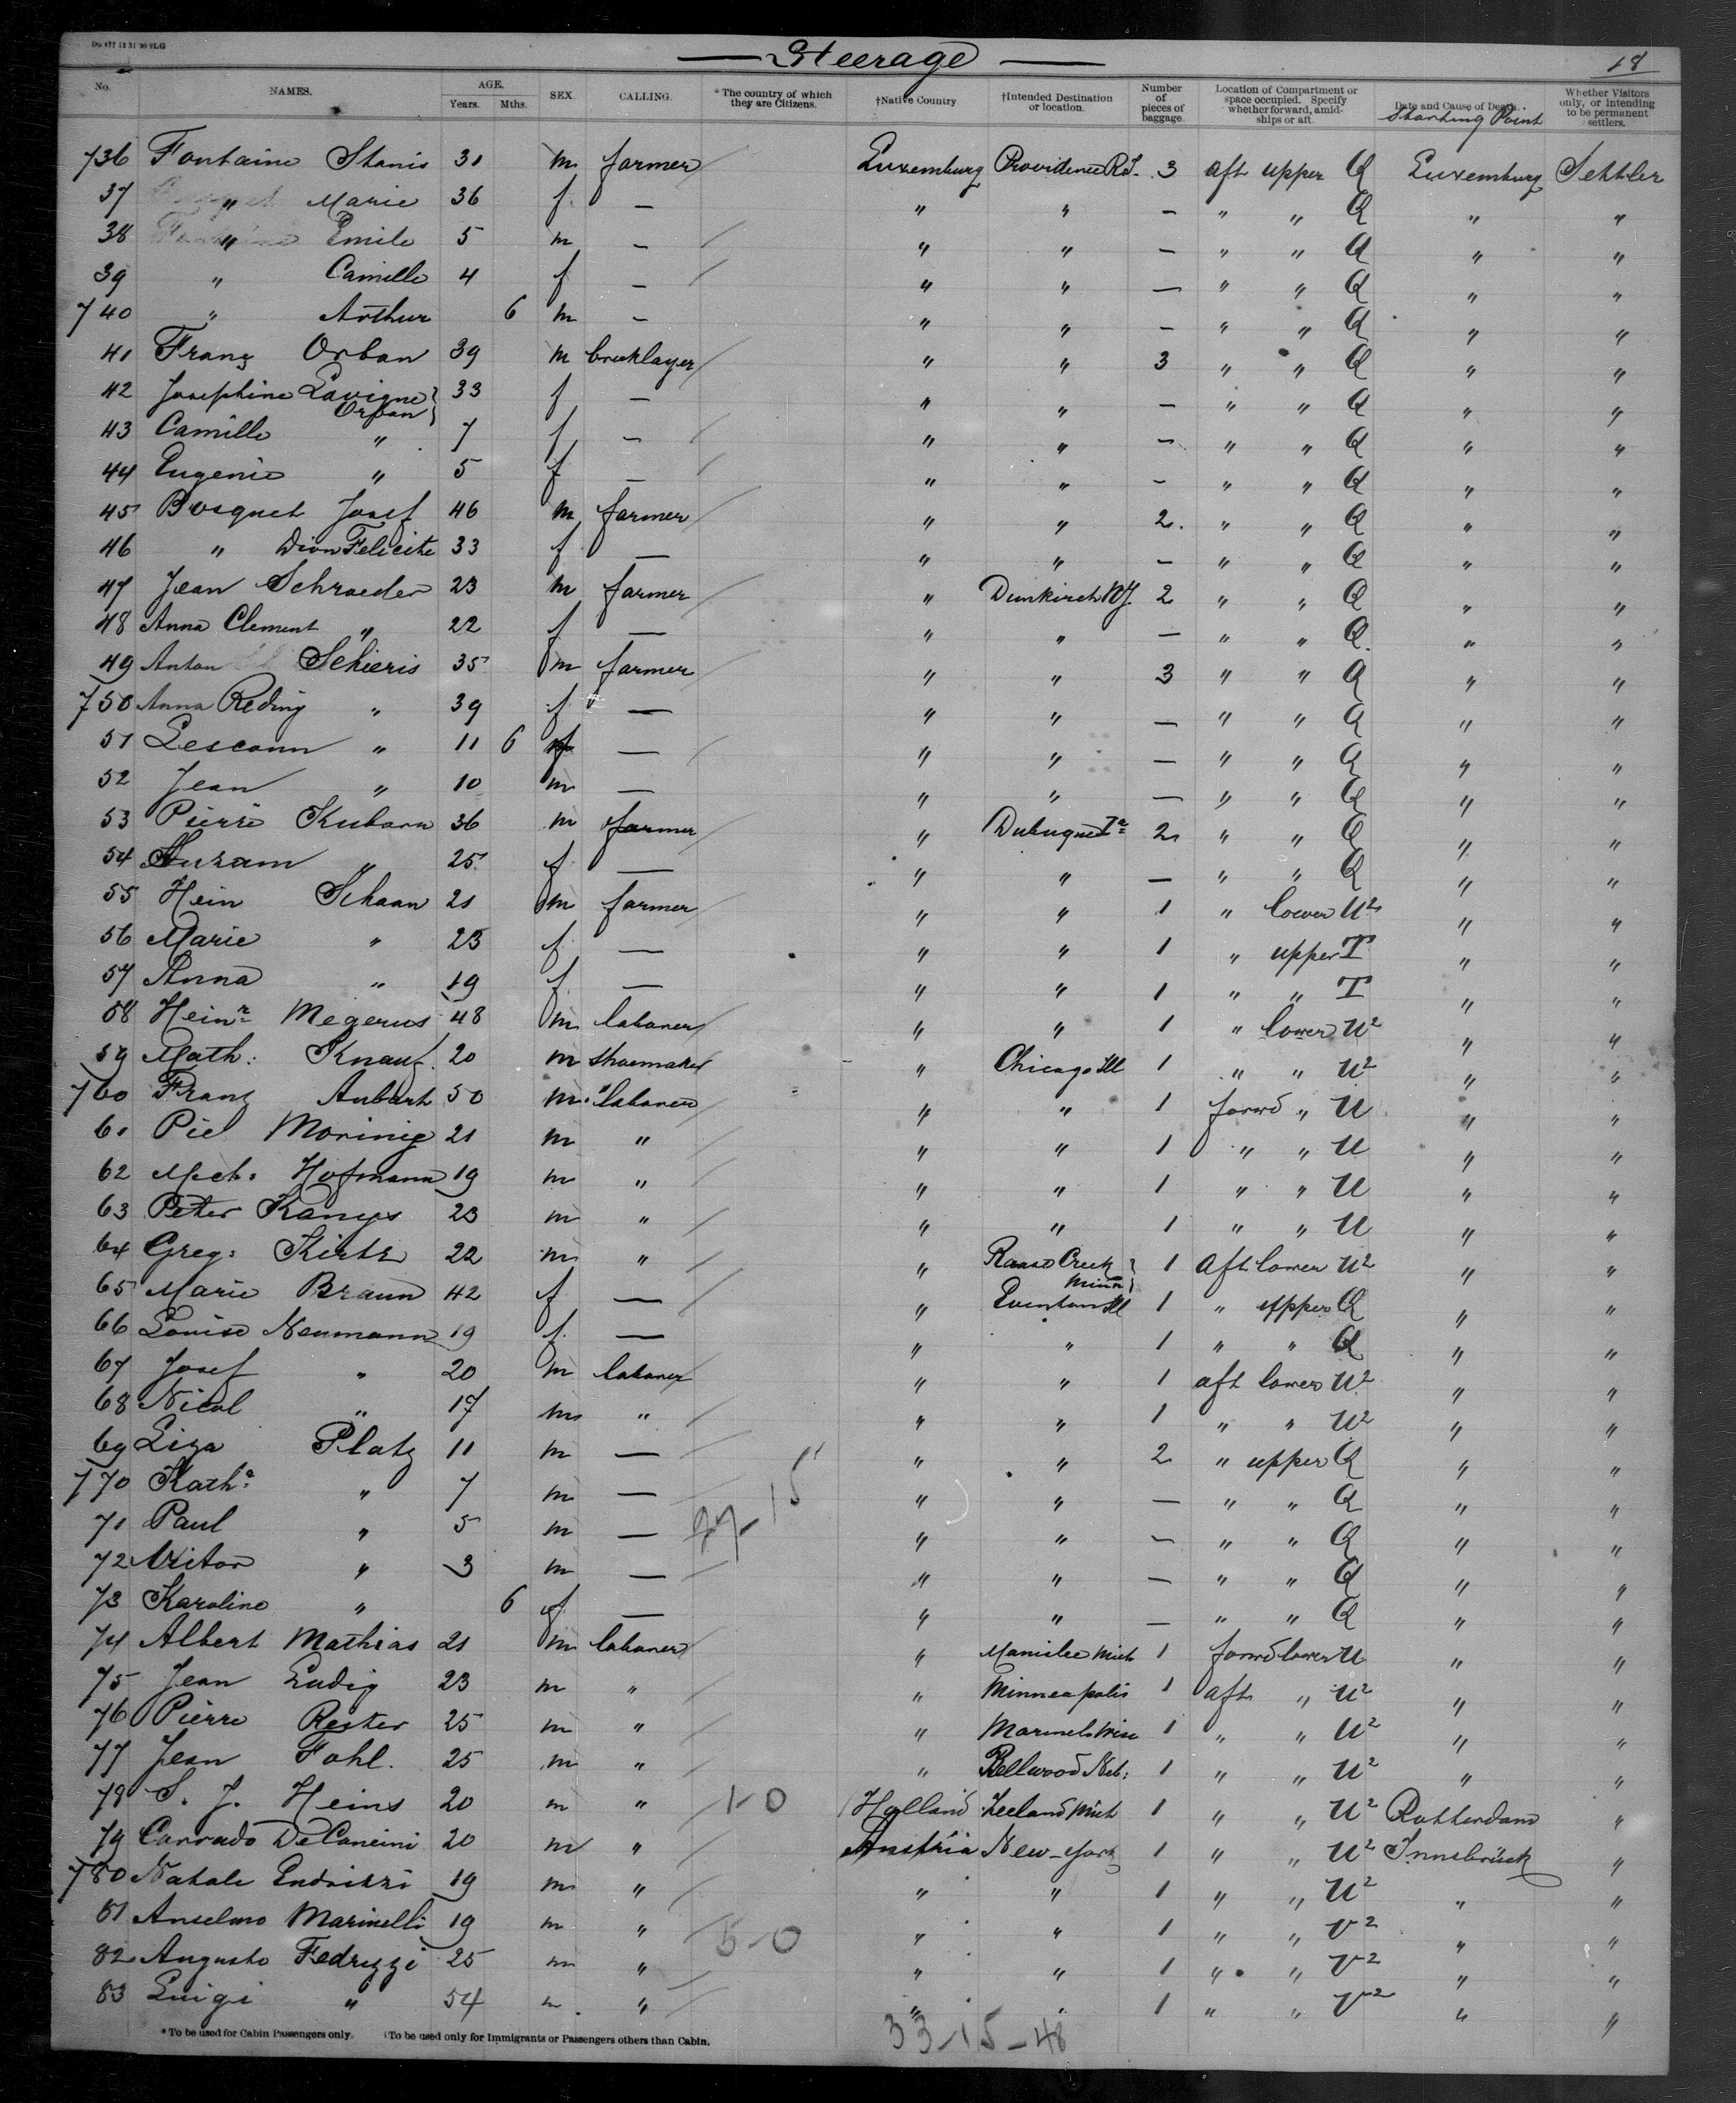 Steerage 18
No. NAMES. AGE. Years. Mths. SEX. CALLING. *The country of which they are Citizens. †Native Country †Intended Destination or location. Number of pieces of baggage Location of Compartment or space occupied. Specify whether forward, amidships or aft. Date and Cause of Death. Starting Point Whether Visitors only, or intending to be permanent settlers.
736 Fontaine Stanis 31 m farmer Luxemburg Providence R.I. 3 aft upper Q Luxemburg Settler
37 " Marie 36 f — " " — " " Q " "
38 " Emile 5 m — " " — " " Q " "
39 " Camille 4 f — " " — " " Q " "
740 " Arthur 6 m — " " — " " Q " "
41 Franz Orban 39 m bricklayer " " 3 " " Q " "
42 Josephine Lavigne Orban 33 f — " " — " " Q " "
43 Camille " 7 f — " " — " " Q " "
44 Eugenie " 5 f — " " — " " Q " "
45 Bosquet Josef 46 m farmer " " 2. " " Q " "
46 " Dion Felicite 33 f — " " — " " Q " "
47 Jean Schroeder 23 m farmer " Dunkirch NY. 2 " " Q " "
48 Anna Clement " 22 f — " " — " " Q " "
49 Anton Schieris 35 m farmer " " 3 " " Q " "
750 Anna Reding " 39 f — " " — " " Q " "
51 " 11 6 f — " " — " " Q " "
52 Jean " 10 m — " " — " " Q " "
53 Pierre Kuborn 36 m farmer " Dubuque Ia 2 " " Q " "
54 " 25 f — " " — " " Q " "
55 Hein Schaan 21 m farmer " " 1 " lower U2 " "
56 Marie " 23 f — " " 1 " upper T " "
57 Anna " 19 f — " " 1 " " T " "
58 Heinr Megerus 48 m laborer " " 1 " lower U2 " "
59 Math: Knauf 20 m shoemaker " Chicago Ill 1 " " U2 " "
760 Franz 50 m laborer " " 1 forwd " U " "
61 21 m " " " 1 " " U " "
62 Mich: Hofmann 19 m " " " 1 " " U " "
63 Peter 23 m " " " 1 " " U " "
64 Greg: 22 m " " Creek Minn 1 aft lower U2 " "
65 Marie Braun 42 f — " Ill 1 " upper Q " "
66 Louise Neumann 19 f — " " 1 " " Q " "
67 Josef " 20 m laborer " " 1 aft lower U2 " "
68 Nicol " 17 m " " " 1 " " U2 " "
69 Liza Platz 11 m — " " 2 " upper Q " "
770 Katha " 7 m — " " — " " Q " "
71 Paul " 5 m — " " — " " Q " "
72 " 3 m — " " — " " Q " "
73 Karoline " 6 f — " " — " " Q " "
74 Albert Mathias 21 m laborer " Manislee Mich 1 forwd lower U " "
75 Jean Ludig 23 m " " Minneapolis 1 aft " U2 " "
76 Pierre 25 m " " 1 " " U2 " "
77 Jean Fohl. 25 m " " Bellwood Neb: 1 " " U2 " "
78 S. J. Heins 20 m " 1-0 Holland Zeeland Mich 1 " " U2 Rotterdam "
79 Corrado De Concini 20 m " Austria New-York 1 " " U2 Innsbrück "
780 Natale Endrizzi 19 m " " " 1 " " U2 " "
81 Anselmo Marinelli 19 m " 5-0 " " 1 " " V2 " "
82 Augusto Fedrizzi 25 m " " " 1 " " V2 " "
83 Luigi " 54 m " " " 1 " " V2 " "
*To be used for Cabin Passengers only. †To be used only for Immigrants or Passengers others than Cabin.
33-15-48